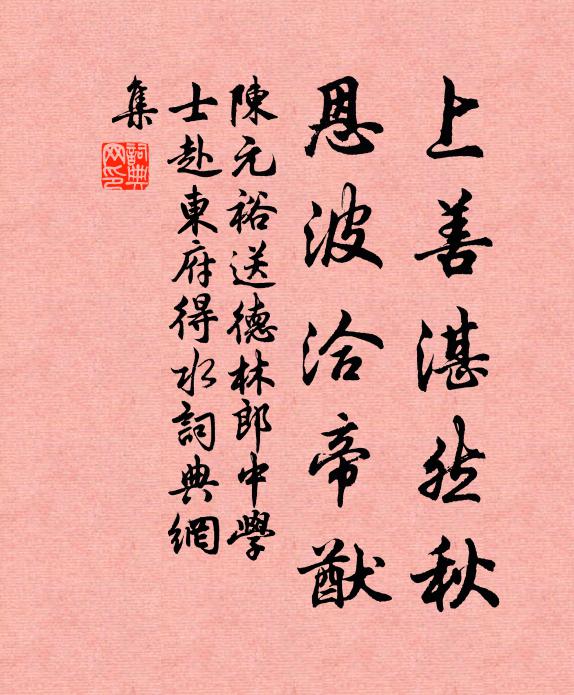 上善湛然秋
恩波洽帝猷
陳元裕送德林郎中學
士赴東府得水詞典網
集
詞典網印